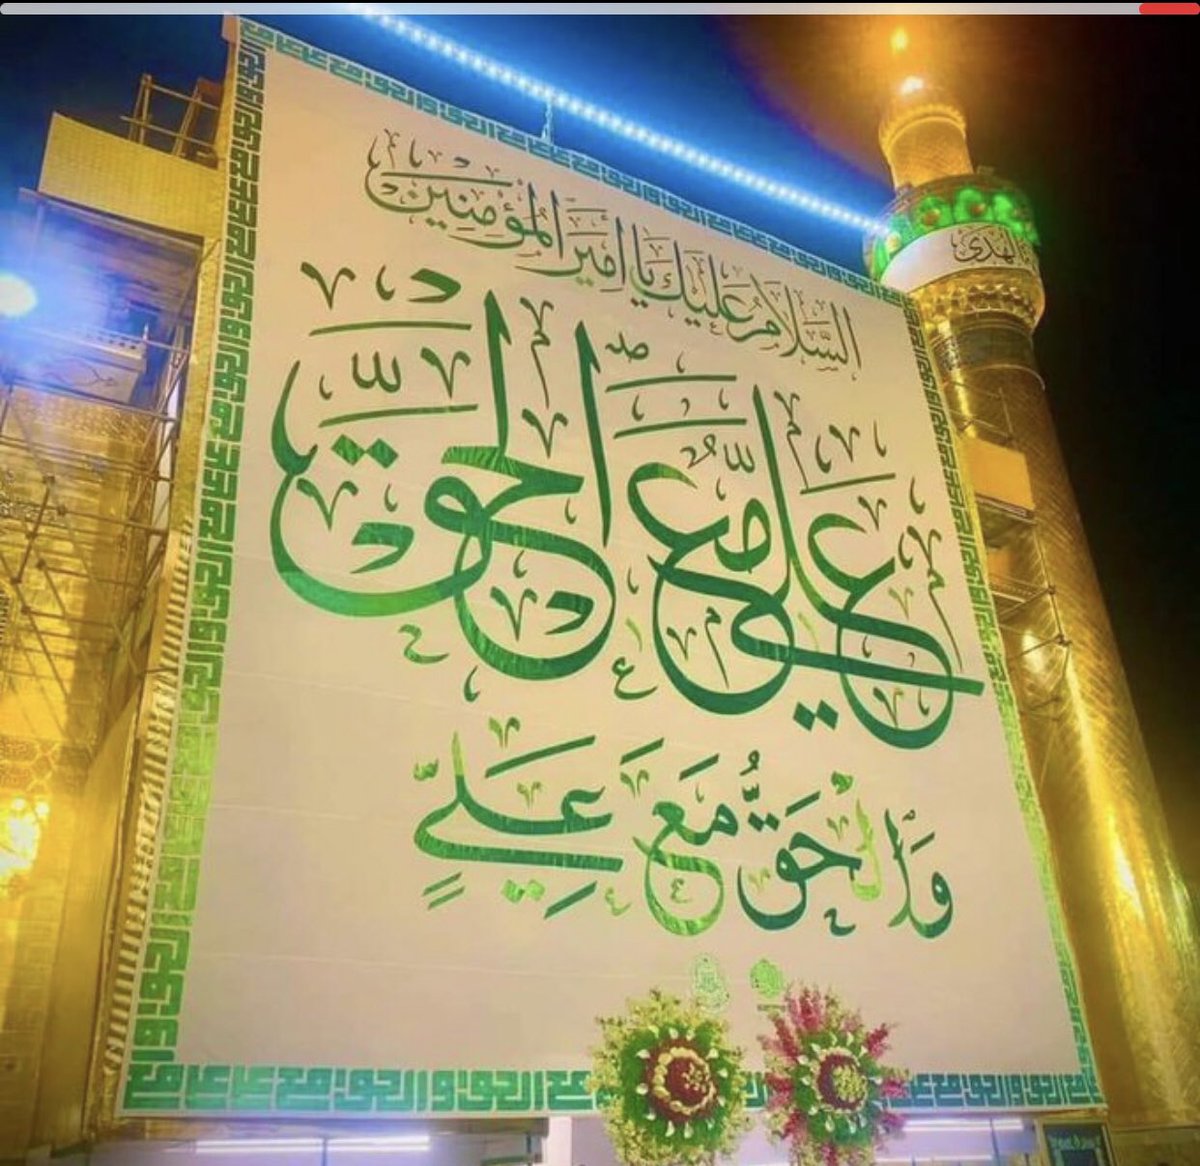 السَّلَامُ عَلَيْكَ يَا أَمِيرَ الْمُؤْمِنِينَ
عَلِيٌّ مَعَ الْحَقِّ
وَالْحَقُّ مَعَ عَلِيٍّ
الهدى